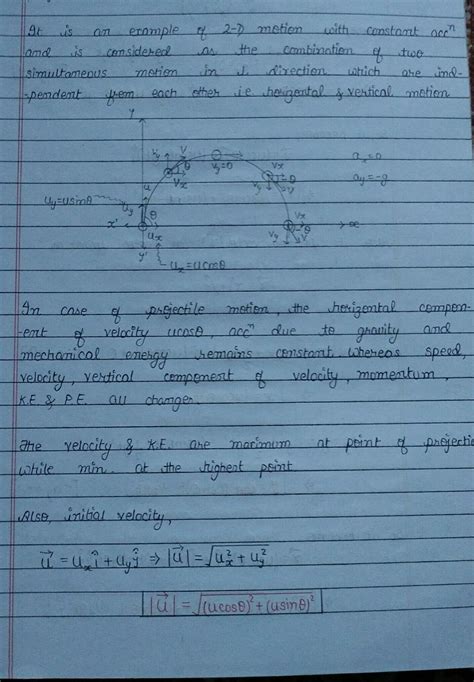 It is an example of 2-D motion with constant accⁿ
and is considered as the combination of two
simultaneous motion in ⊥ direction which are ind-
-pendent from each other i.e horizental & vertical motion
y
Vy V
Vx
Vy=0
Vx
Vy V
θ
aₓ=0
a_y=-g
u_y=usinθ
u_y
u
θ
uₓ
Vx
Vy V
θ
x'
x
y'
uₓ=ucosθ
In case of projectile motion, the horizental compon-
-ent of velocity ucosθ, accⁿ due to gravity and
mechanical energy remains constant whereas speed,
velocity, vertical component of velocity, momentum,
K.E & P.E. all changes.
The velocity & K.E. are maximum at point of projectio
while min. at the highest point.
Also, initial velocity,
u⃗ = uₓî + u_yĵ ⇒ |u⃗| = √(uₓ² + u_y²)
|u⃗| = √((ucosθ)² + (usinθ)²)